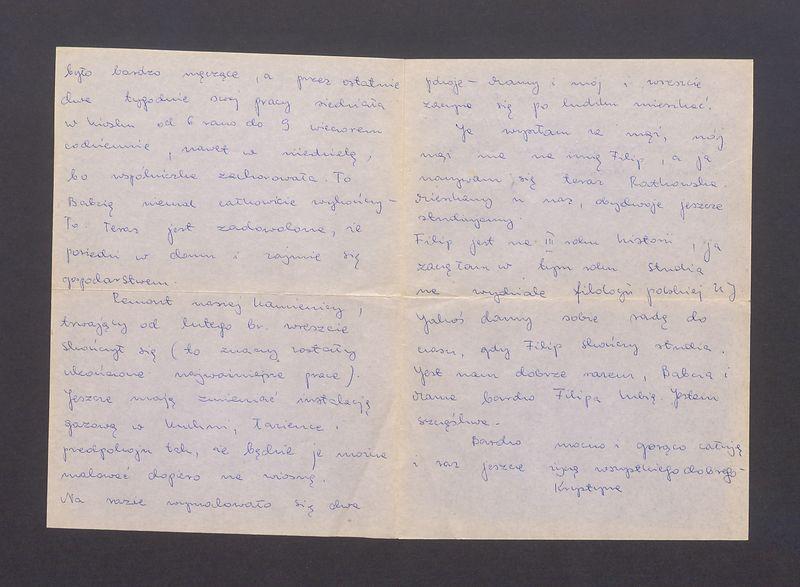 było bardzo męczące, a przez ostatnie
dwa tygodnie swej pracy siedziała
w kiosku od 6 rano do 9 wieczorem
codziennie, nawet w niedzielę,
bo wspólniczka zachorowała. To
Babcię niemal całkowicie wykończy-
ło. Teraz jest zadowolona, że
posiedzi w domu i zajmie się
gospodarstwem.
Remont naszej kamienicy,
trwający od lutego br. wreszcie
skończył się (to znaczy zostały
ukończone najważniejsze prace).
Jeszcze mają zmieniać instalację
gazową w kuchni, łazience i
przedpokoju tak, że będzie je można
malować dopiero na wiosnę.
Na razie wymalowało się dwa
pokoje - Mamy i mój i wreszcie
zacznie się po ludzku mieszkać.
Ja wyszłam za mąż, mój
mąż ma na imię Filip, a ja
nazywam się teraz Ratkowska.
Mieszkamy u nas, obydwoje jeszcze
studiujemy.
Filip jest na III roku historii, ja
zaczęłam w tym roku studia
na wydziale filologii polskiej UJ
Jakoś damy sobie radę do
czasu, gdy Filip skończy studia.
Jest nam dobrze razem, Babcia i
Mama bardzo Filipa lubią. Jestem
szczęśliwa.
Bardzo mocno i gorąco całuję
i raz jeszcze życzę wszystkiego dobrego -
Krystyna